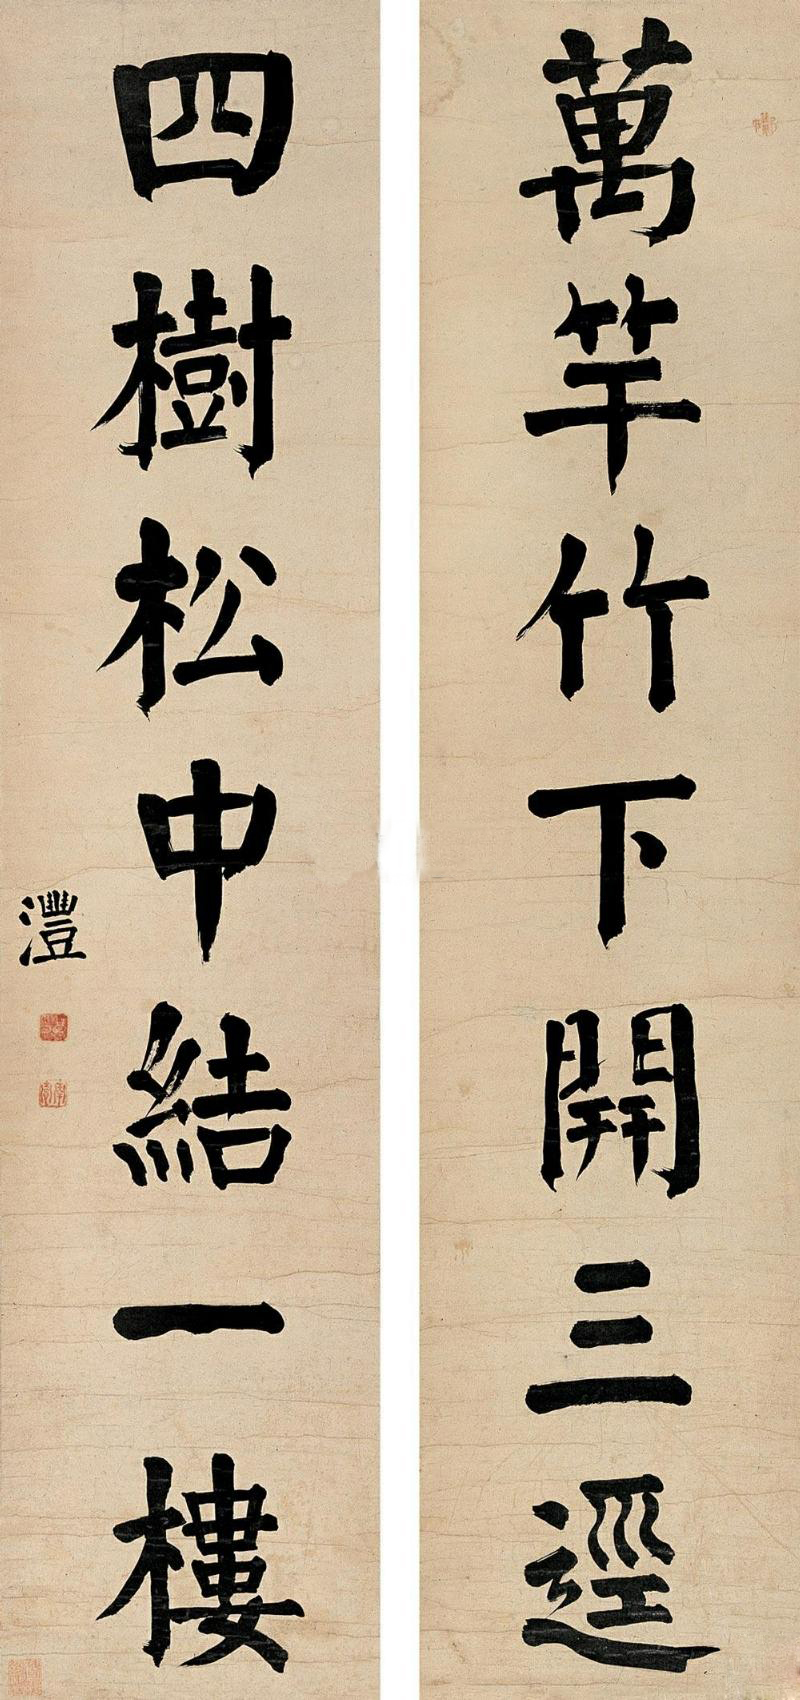 萬竿竹下開三逕
四樹松中結一樓
澧